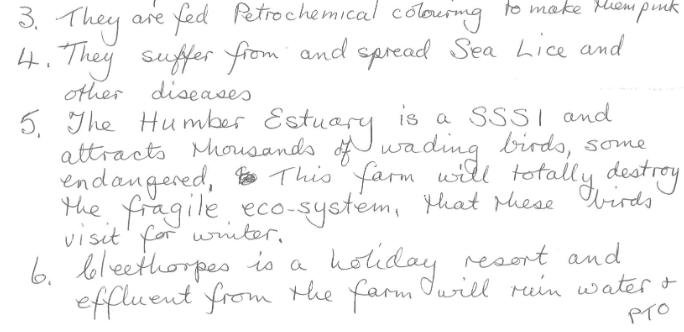 3. They are fed Petrochemical colouring to make them pink
4. They suffer from and spread Sea Lice and
other diseases
5. The Humber Estuary is a SSSI and
attracts thousands of wading birds, some
endangered, This farm will totally destroy
the fragile eco-system, that these birds
visit for winter.
6. Cleethorpes is a holiday resort and
effluent from the farm will ruin water +
PTO